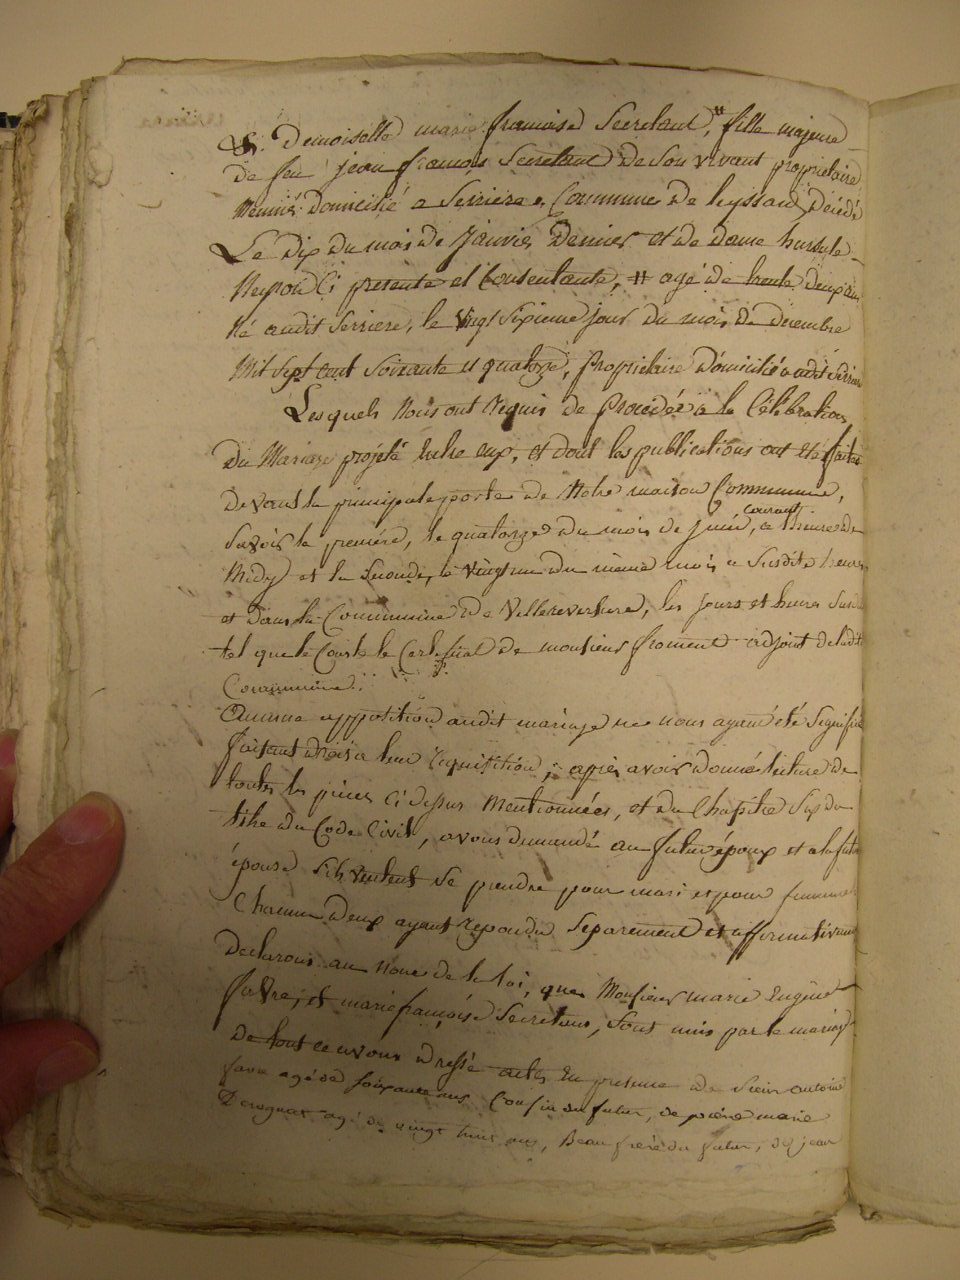 & Demoiselle marie françoise Secretant, # fille majeure
de feu jean françois Secretant de Son vivant propriétaire
Meunié Domicilié a Serriere, Commune de leyssard, Décédé
Le dix du mois de Janvier Dernier et de dame hursule
Neyron Ci presente et Consentante, # agé de trente deux ans
Né audit Serriere, le Vingt Sixieme jour du mois de decembre
Mil Sept Cent Soixante et quatorze, propriétaire Domicilié audit Serriere
Lesquels Nous ont Requis de Procédér a la Célébration
Du Mariage projété Entre eux, et dont les publications ont été faites
devant la principale porte de Notre maison Commune,
Savoir la premiere, le quatorze du mois de juin courant, a l'heure de
Midy et la Seconde, le vingt un du même mois a Susdite heure
et dans la Commune de Villereversure, les jours et heures Susdits
tel que le Conste le Certificat de monsieur froment adjoint de ladite
Commune.
Aucune opposition audit mariage ne nous ayant été Signifiée
faisant droit a leur Requisition, après avoir donné lecture de
toutes les pieces Ci dessus Mentionnées, et du Chapitre Six du
titre du Code Civil, avons demandé au futur époux et a la future
épouse S'ils veulent Se prendre pour mari et pour femme
Chacun D'eux ayant Repondu Separement et affirmativement
Declarons au Nom de la loi, que Monsieur marie Eugène
favre, et marie françoise Secretant, Sont unis par le mariage
De tout ce avons dressé acte, En presence de Sieur antoine
favre agé de Soixante ans Cousin du futur, de pierre marie
agé de vingt huit ans, Beau frere du futur, de jean